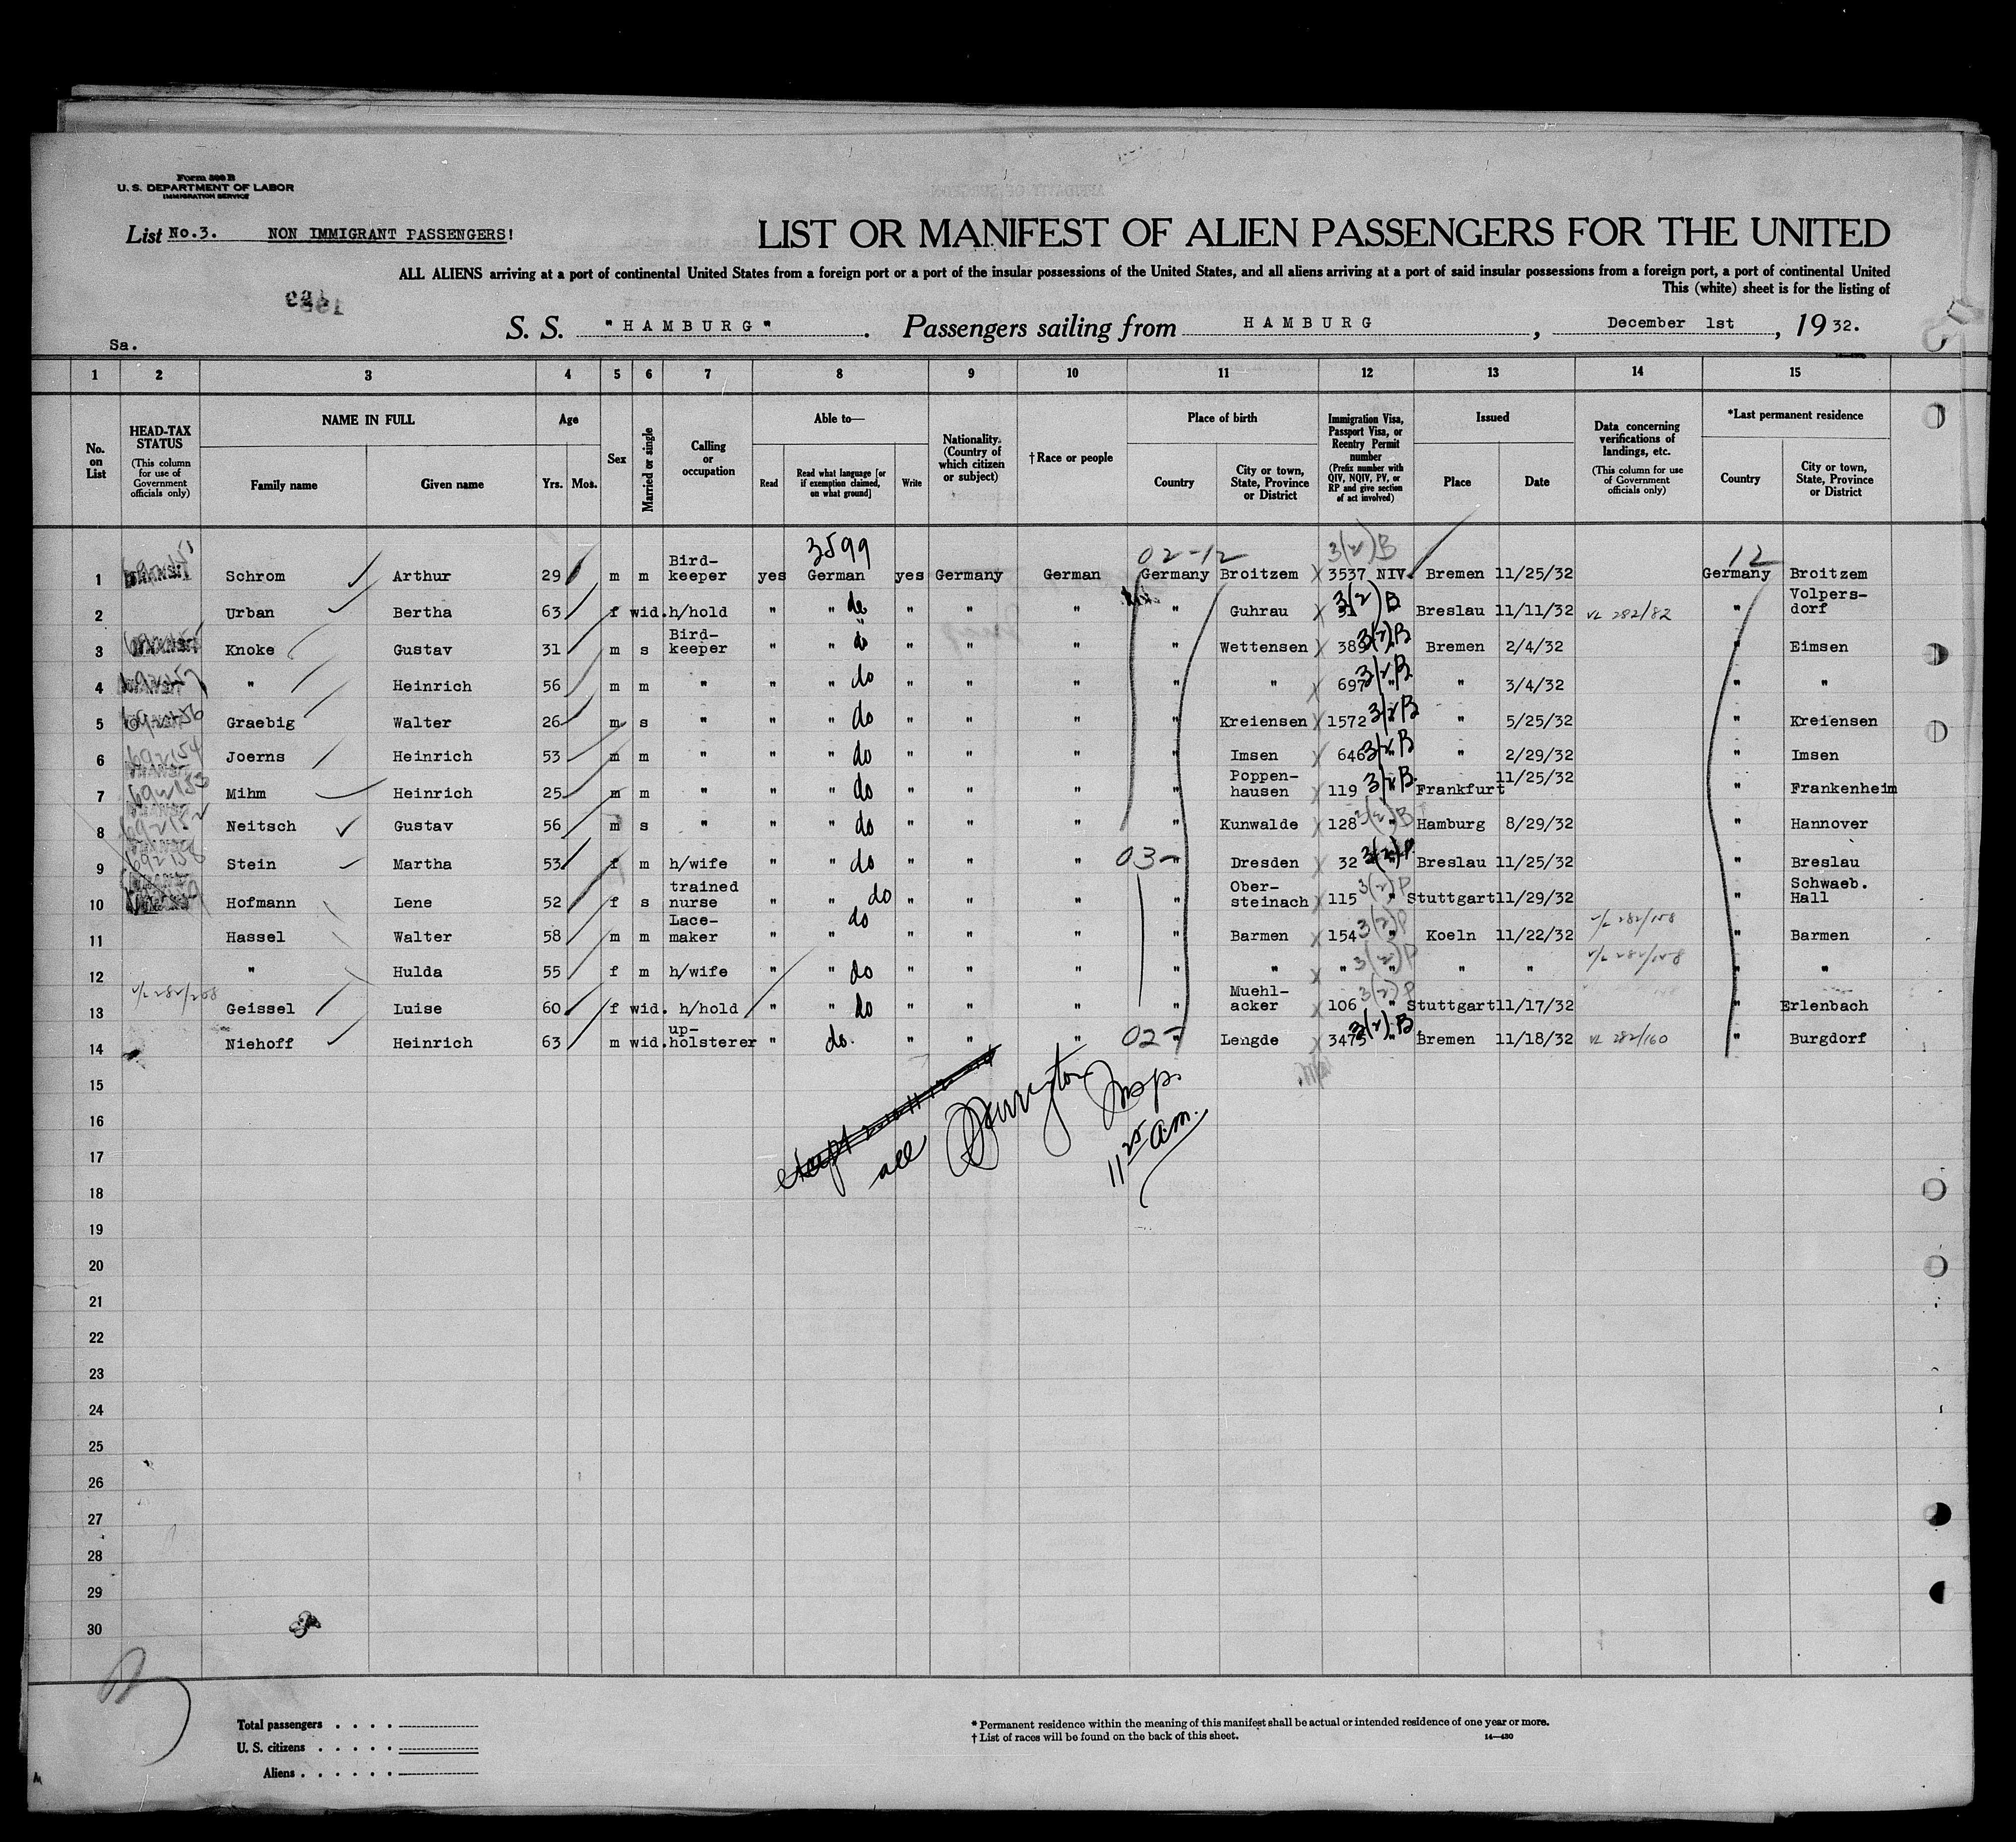 Form 500 B
U. S. DEPARTMENT OF LABOR
IMMIGRATION SERVICE
List No.3. NON IMMIGRANT PASSENGERS!
LIST OR MANIFEST OF ALIEN PASSENGERS FOR THE UNITED
ALL ALIENS arriving at a port of continental United States from a foreign port or a port of the insular possessions of the United States, and all aliens arriving at a port of said insular possessions from a foreign port, a port of continental United
This (white) sheet is for the listing of
S. S. "HAMBURG". Passengers sailing from HAMBURG, December 1st, 1932.
Sa.
1 2 3 4 5 6 7 8 9 10 11 12 13 14 15
No. on List
HEAD-TAX STATUS (This column for use of Government officials only)
NAME IN FULL
Family name Given name
Age
Yrs. Mos.
Sex
Married or single
Calling or occupation
Able to—
Read Read what language [or if exemption claimed, on what ground] Write
Nationality. (Country of which citizen or subject)
†Race or people
Place of birth
Country City or town, State, Province or District
Immigration Visa, Passport Visa, or Reentry Permit number (Prefix number with QIV, NQIV, PV, or RP and give section of act involved)
Issued
Place Date
Data concerning verifications of landings, etc. (This column for use of Government officials only)
*Last permanent residence
Country City or town, State, Province or District
3599 02-12 3(2)B 12
1 Schrom Arthur 29 m m Bird-keeper yes German yes Germany German Germany Broitzem 3537 NIV. Bremen 11/25/32 Germany Broitzem
2 Urban Bertha 63 f wid. h/hold " " do " " " " Guhrau 3(2)B Breslau 11/11/32 VL 282/82 " Volpers-dorf
3 Knoke Gustav 31 m s Bird-keeper " " do " " " " Wettensen 3(2)B Bremen 2/4/32 " Eimsen
4 " Heinrich 56 m m " " " do " " " " " 697 3(2)B " 3/4/32 " "
5 Graebig Walter 26 m s " " " do " " " " Kreiensen 1572 3(2)B " 5/25/32 " Kreiensen
6 Joerns Heinrich 53 m m " " " do " " " " Imsen 646 3(2)B " 2/29/32 " Imsen
7 Mihm Heinrich 25 m m " " " do " " " " Poppen-hausen 119 3(2)B. Frankfurt 11/25/32 " Frankenheim
8 Neitsch Gustav 56 m s " " " do " " " " Kunwalde 128 3(2)B Hamburg 8/29/32 " Hannover
9 Stein Martha 53 f m h/wife " " do " " " 03- " Dresden 32 3(2)P Breslau 11/25/32 " Breslau
10 Hofmann Lene 52 f s trained nurse " " do " " " " Ober-steinach 115 3(2)P " Stuttgart 11/29/32 " Schwaeb. Hall
11 Hassel Walter 58 m m Lace-maker " " do " " " " Barmen 154 3(2)P " Koeln 11/22/32 V/L 282/158 " Barmen
12 " Hulda 55 f m h/wife " " do " " " " " " 3(2)P " " " V/L 282/158 " "
13 V/L 282/208 Geissel Luise 60 f wid. h/hold " " do " " " " Muehl-acker 106 3(2)P " Stuttgart 11/17/32 " Erlenbach
14 Niehoff Heinrich 63 m wid. up-holsterer " do. " " " 02- " Lengde 3475 3(2)B " Bremen 11/18/32 VL 282/160 " Burgdorf
15
16
all Insp.
17
11 25 a.m.
18
19
20
21
22
23
24
25
26
27
28
29
30
Total passengers . . . .
U. S. citizens . . . . .
Aliens . . . . . .
* Permanent residence within the meaning of this manifest shall be actual or intended residence of one year or more.
† List of races will be found on the back of this sheet. 14—430